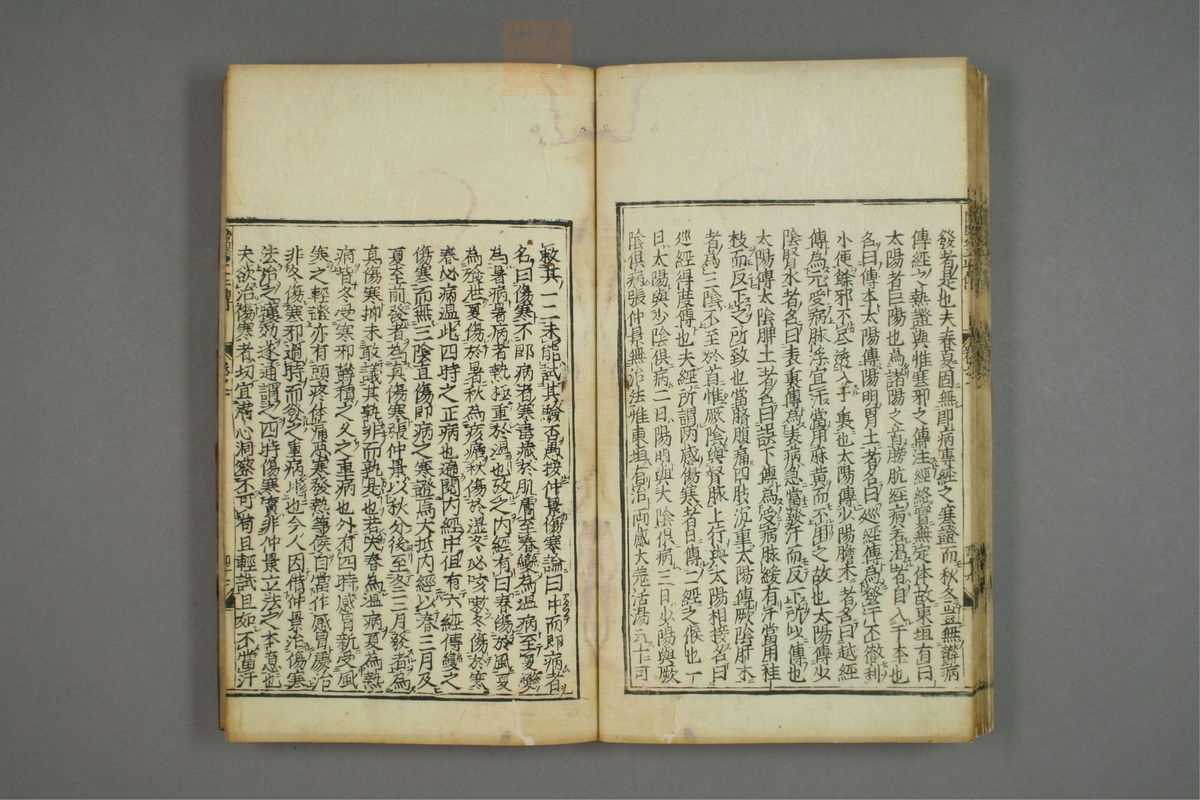 發者是也夫春夏固無即病專經之寒證而秋冬豈無雜病
傳經之熱證與惟寒邪之傳注經絡實無定体故東垣有曰
太陽者巨陽也為諸陽之首膀胱經病若渴者自入于本也
名曰傳本太陽傳陽明胃土者名曰巡經傳為發汗不徹利
小便餘邪不尽透入于裏也太陽傳少陽膽木者名曰越經
傳為元受病脉浮宜汗當用麻黄而不用之故也太陽傳少
陰腎水者名曰表裏傳為表病急當發汗而反下所以傳也
太陽傳太陰脾土者名曰誤下傳為受病脉緩有汗當用桂
枝而反下之所致也當腊腹痛四肢沉重太陽傳厥陰肝木
者為三陰不至於首惟厥陰與督脉上行與太陽相接名曰
巡經得度傳也夫經所謂両感傷寒者日傳二經之候也一
日太陽與少陰俱病二日陽明與太陰俱病三日少陽與厥
陰俱病張仲景無治法惟東垣有治両感大羗活湯云十可
救其一二未能試其驗否愚按仲景傷寒論曰中而即病者
名曰傷寒不即病者寒毒藏於肌膚至春變為温病至夏變
為暑病暑病者熱極重於温也攷之内經有曰春傷於風夏
為飱泄夏傷於暑秋為痎瘧秋傷於湿冬必咳嗽冬傷於寒
春必病温此四時之正病也遍閲内經中但有六經傳變之
傷寒而無三陰直傷即病之寒證焉大抵内經以春三月及
夏至前發者為真傷寒張仲景以秋分後至冬三月發者為
真傷寒抑未敢議其孰非而孰是也若夫春為温病夏為熱
病皆冬受寒邪欝積之久之重病也外有四時感冒新受風
寒之輕證亦有頭疼体痛惡寒發熱等候自當作感冒處治
非冬傷寒邪過時而發之重病比也今人因借仲景治傷寒
法治之獲効遂通謂之四時傷寒實非仲景立法之本意也
夫欲治傷寒者切宜潜心洞察不可苟且輕試且如不當汗